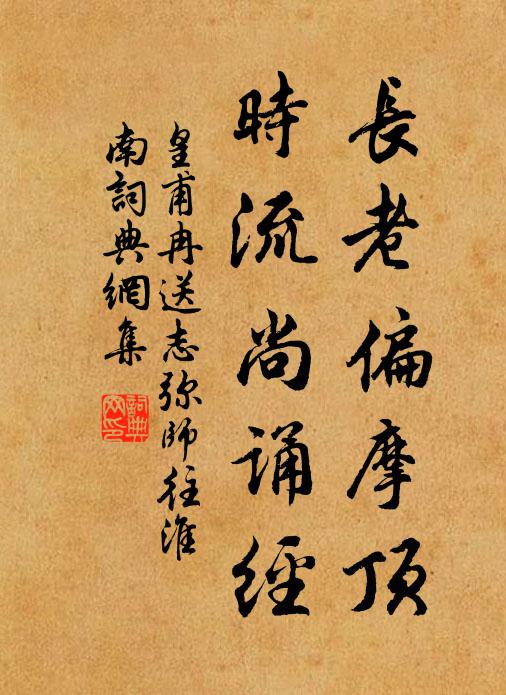 長老偏摩頂
時流尚誦經
皇甫冉送志弥師往淮
南詞典網集
詞典
网印